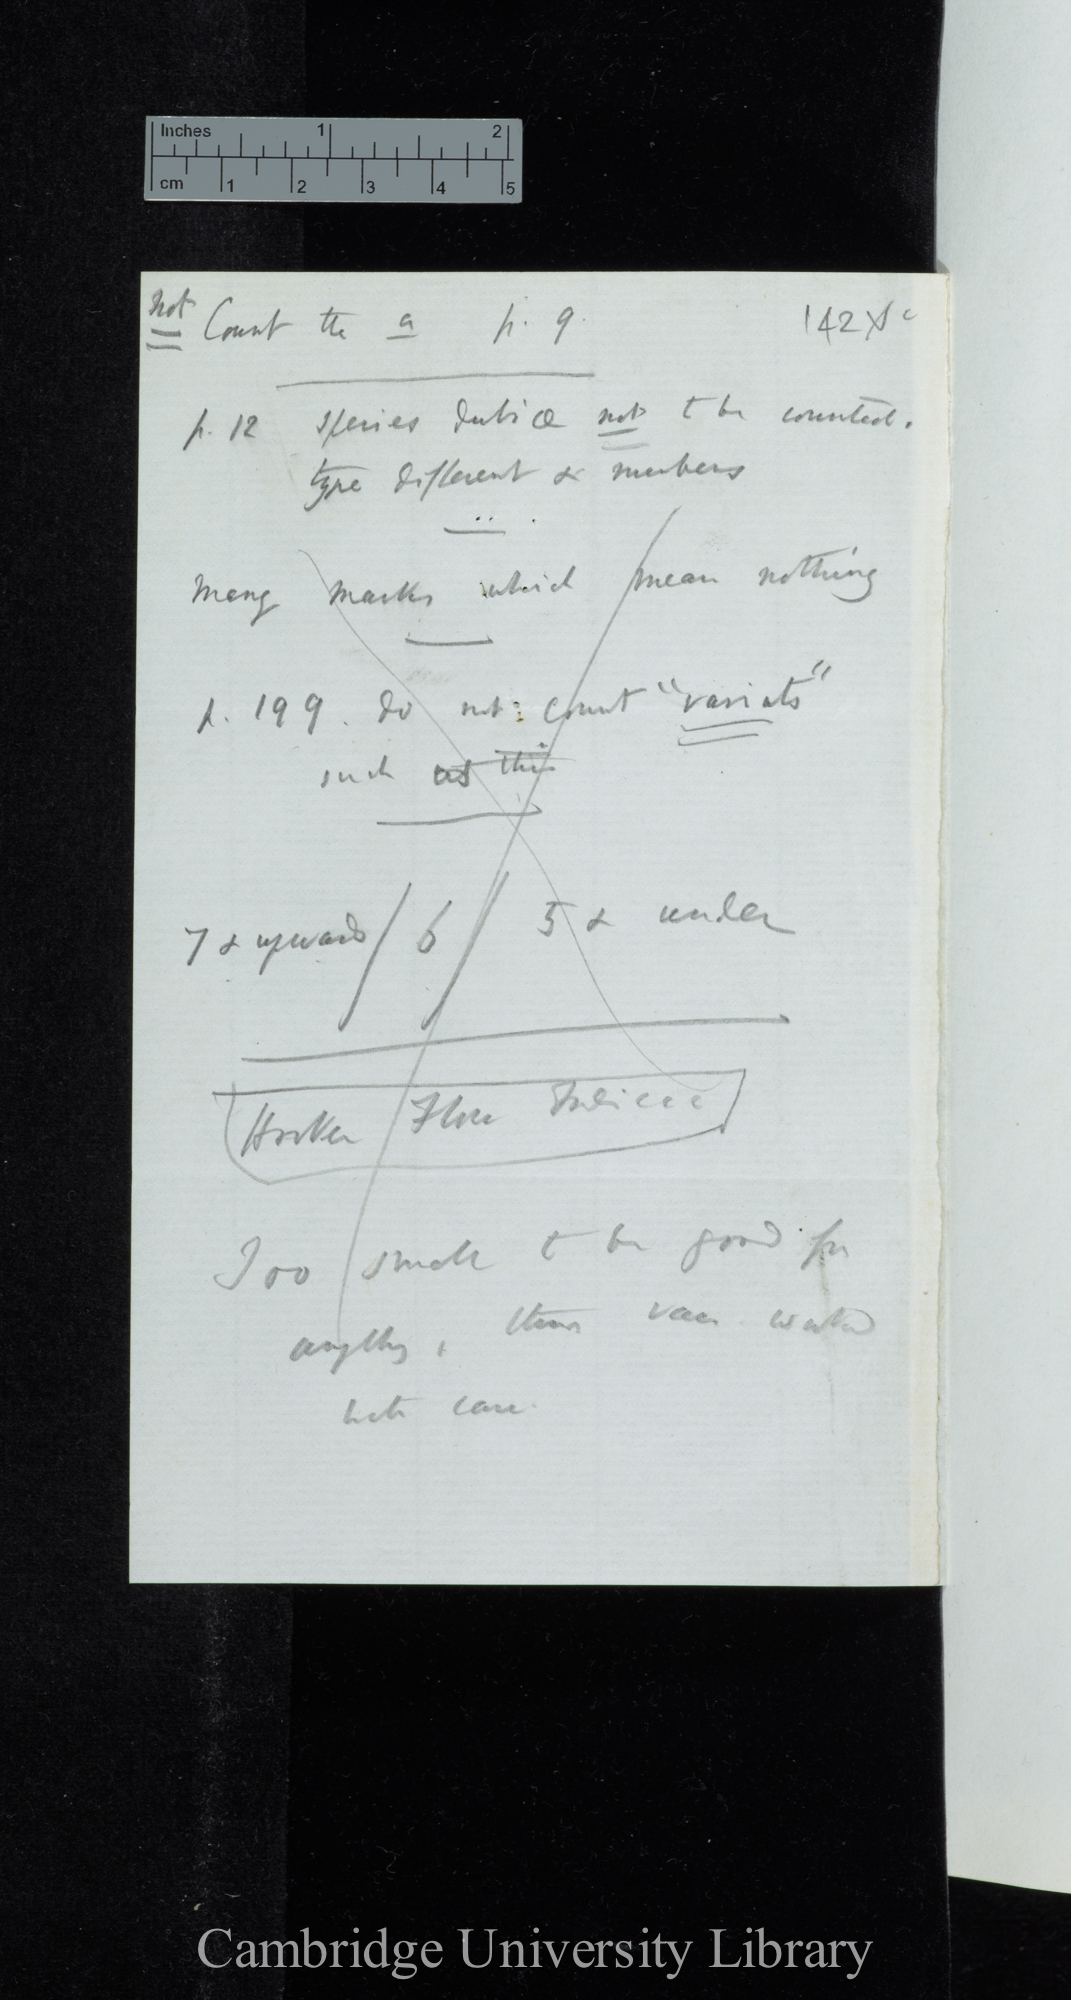 Inches 1 2
cm 1 2 3 4 5
not Count the a p. 9.
142
p. 12 species dubiæ not to be counted.
type different & numbers
Many marks which mean nothing
p. 199. do not count "variats"
such as this
7 & upwards / 6 / 5 & under
Hooker Flora Indica
Too small to be good for
anything,
Cambridge University Library